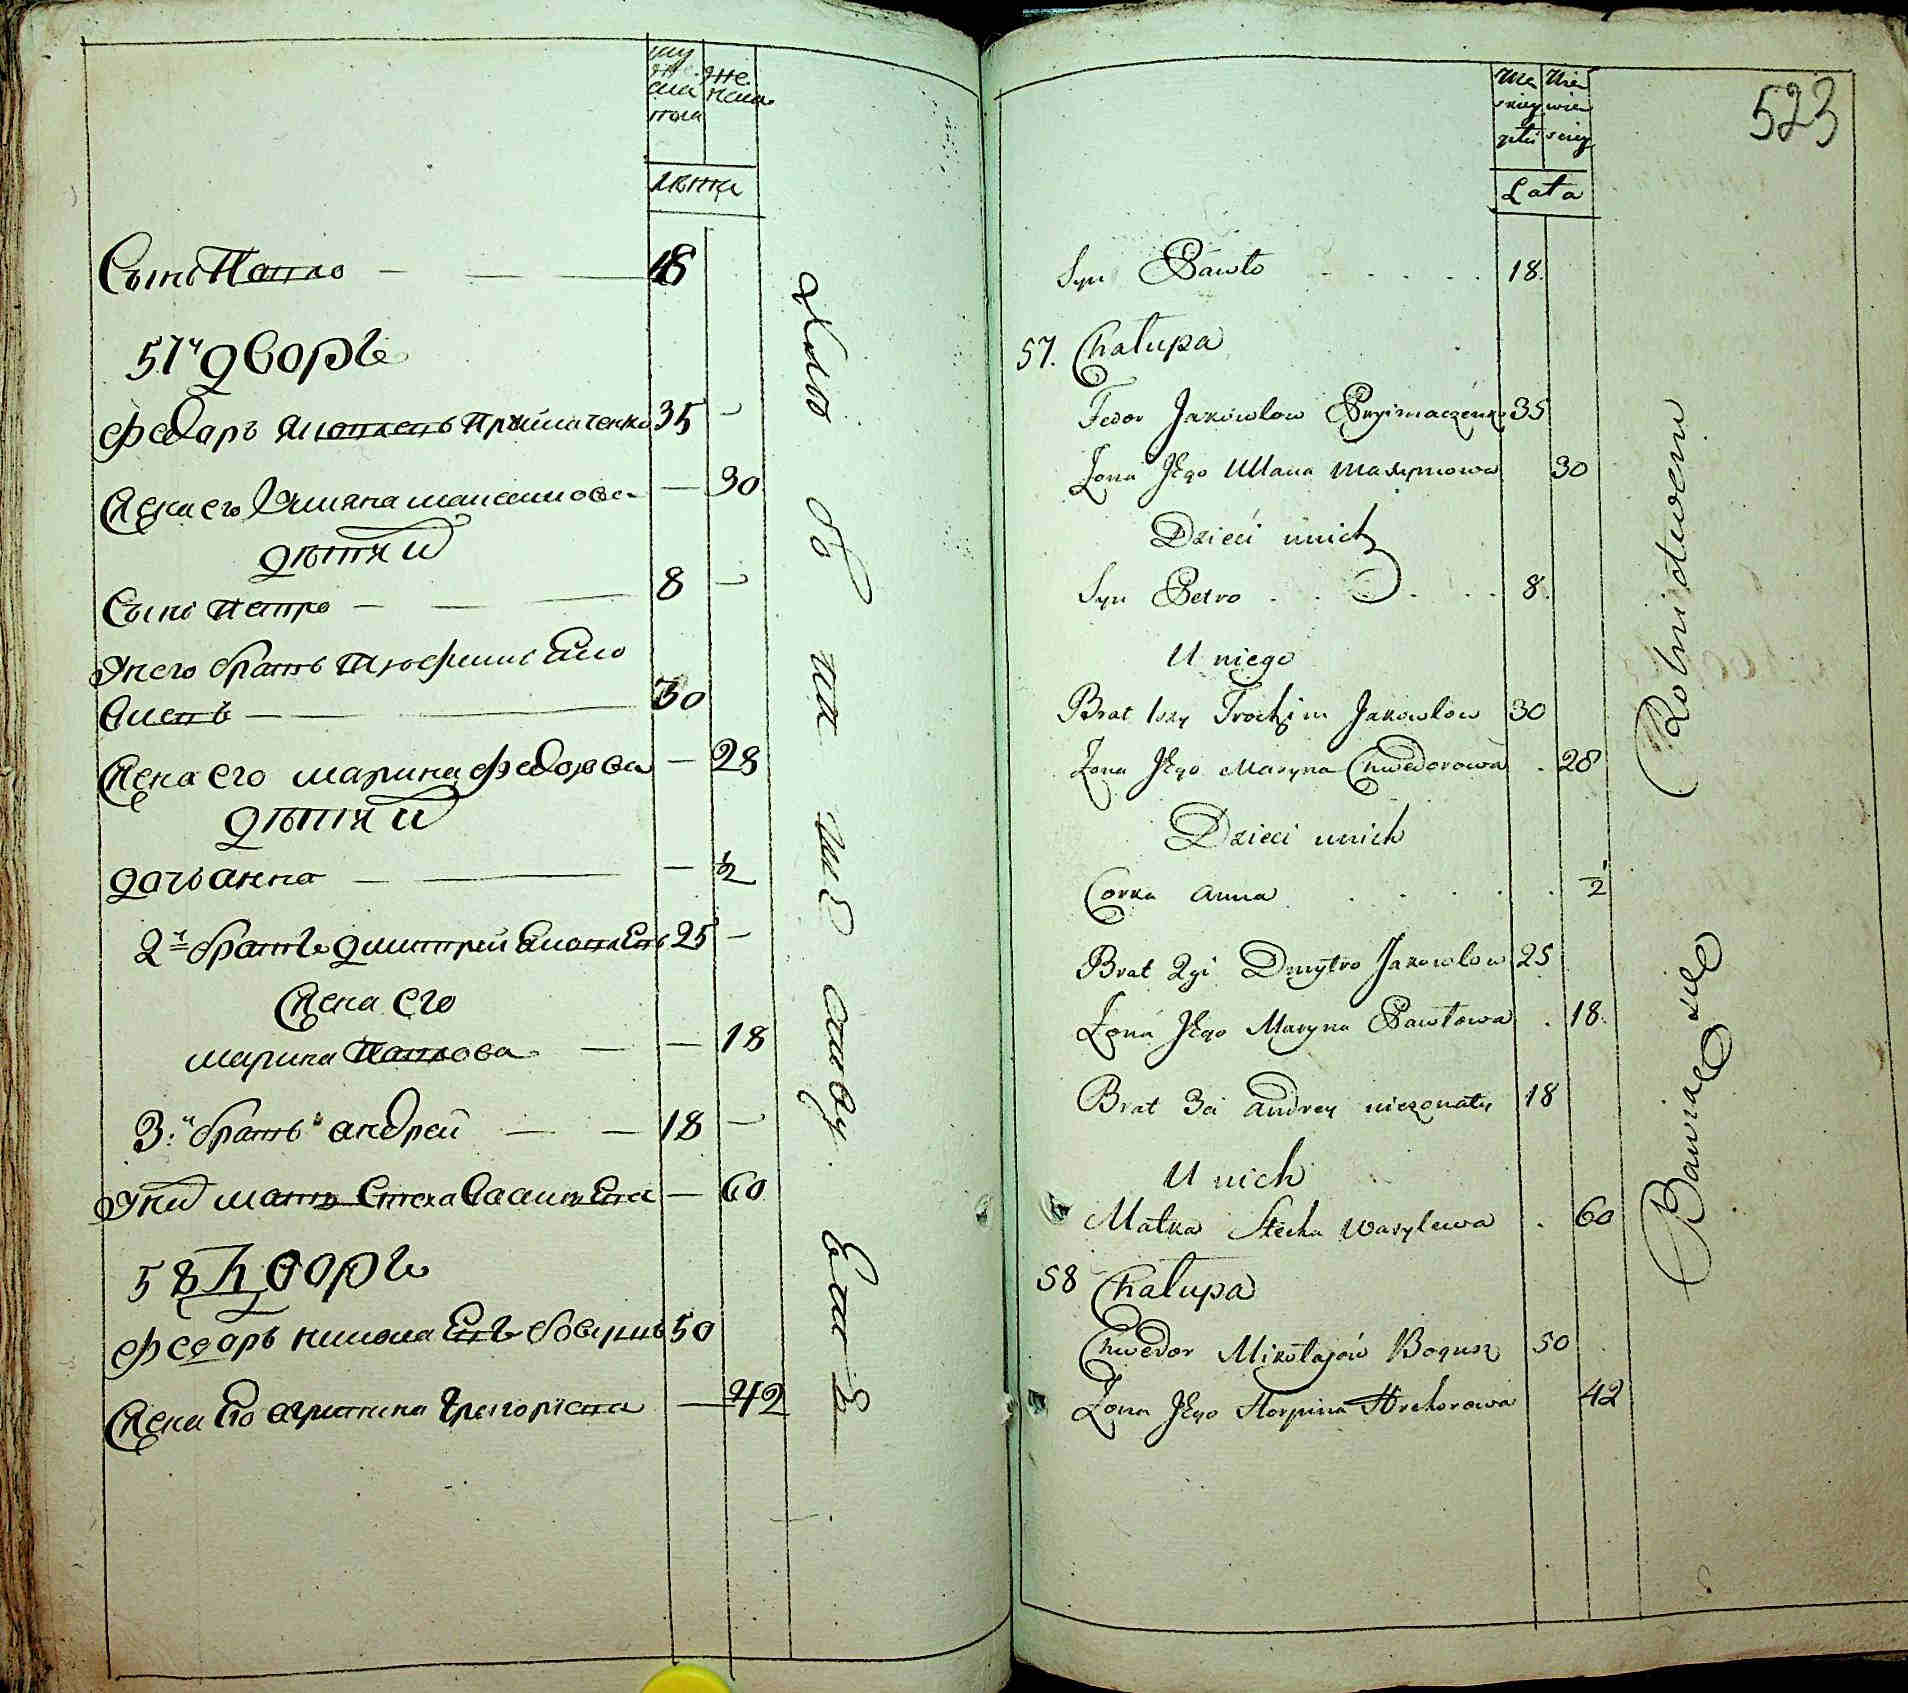 му
же
ска
пола
же.
нска.
лѣта
Сынъ Павло 18
57й дворъ
Федоръ Яковлевъ Приймаченко 35
Жена его Ульяна максимова 30
дѣти ихъ
Сынъ петро 8
Унего братъ Трофимъ Яко
влевъ 30
Жена его марина федорова 28
дѣти ихъ
дочь анна ½
2й братъ дмитрей Яковлевъ 25
Жена его
марина Павлова 18
3й братъ андрей 18
Унихъ мать Стеха Василева 60
58 Дворъ
федоръ николаевъ богушъ 50
Жена его агрипина григориева 42
хлебопашествомъ
523
Lata
Syn Pawło 18.
57. Chałupa
Fedor Jakowlow Pryimaczenko 35
Żona Jego Ullana Maxymowa 30
Dzieci unich
Syn Petro 8.
U niego
Brat 1szy Trochim Jakowlow 30
Żona Jego Maryna Chwedorowa 28
Dzieci unich
Corka Anna ½
Brat 2gi Dmytro Jakowlow 25
Żona Jego Maryna Pawłowa 18.
Brat 3ci Andrey nieżonaty 18
U nich
Matka Stecha Wasylewa 60
58 Chałupa
Chwedor Mikołajów Bogusz 50
Żona Jego Horpina Hrehorowa 42
Rolnictwem
Bawią się